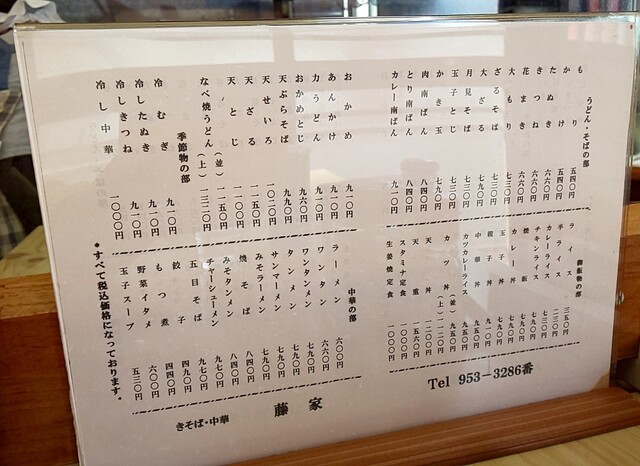 うどん・そばの部
もり 五四〇円
かけ 五四〇円
たぬき 六六〇円
きつね 六六〇円
花まき 六六〇円
大もり 七三〇円
ざるそば 七三〇円
大ざる 七九〇円
月見そば 七三〇円
玉子とじ 七三〇円
かき玉 七三〇円
肉南ばん 八四〇円
とり南ばん 八四〇円
カレー南ばん 九一〇円
おかめ 九一〇円
あんかけ 九一〇円
力うどん 九一〇円
おかめとじ 九六〇円
天ぷらそば 九九〇円
天せいろ 一〇二〇円
天ざる 一一五〇円
天とじ 一一〇〇円
なべ焼うどん(並) 一一五〇円
(上) 一三二〇円
季節物の部
冷むぎ 九一〇円
冷したぬき 九一〇円
冷しきつね 九一〇円
冷し中華 一〇〇〇円
御飯物の部
ライス 三五〇円
半ライス 二三〇円
カレーライス 七三〇円
チキンライス 七九〇円
焼飯 七九〇円
カレー丼 七九〇円
玉子丼 七九〇円
親子丼 九一〇円
中華丼 九五〇円
カツカレーライス 九五〇円
カツ丼(並) 九五〇円
(上) 一一二〇円
天丼 一一〇〇円
天重 一五六〇円
スタミナ定食 一〇〇〇円
生姜焼定食 一〇〇〇円
中華の部
ラーメン 六〇〇円
ワンタン 六六〇円
ワンタンメン 七九〇円
タンメン 七九〇円
サンマーメン 七九〇円
みそラーメン 七九〇円
焼そば 八四〇円
みそタンメン 八四〇円
チャーシューメン 九七〇円
五目そば 九七〇円
餃子 四九〇円
もつ煮 四四〇円
野菜イタメ 六〇〇円
玉子スープ 五三〇円
*すべて税込価格になっております。
きそば・中華 藤家
Tel 953-3286番